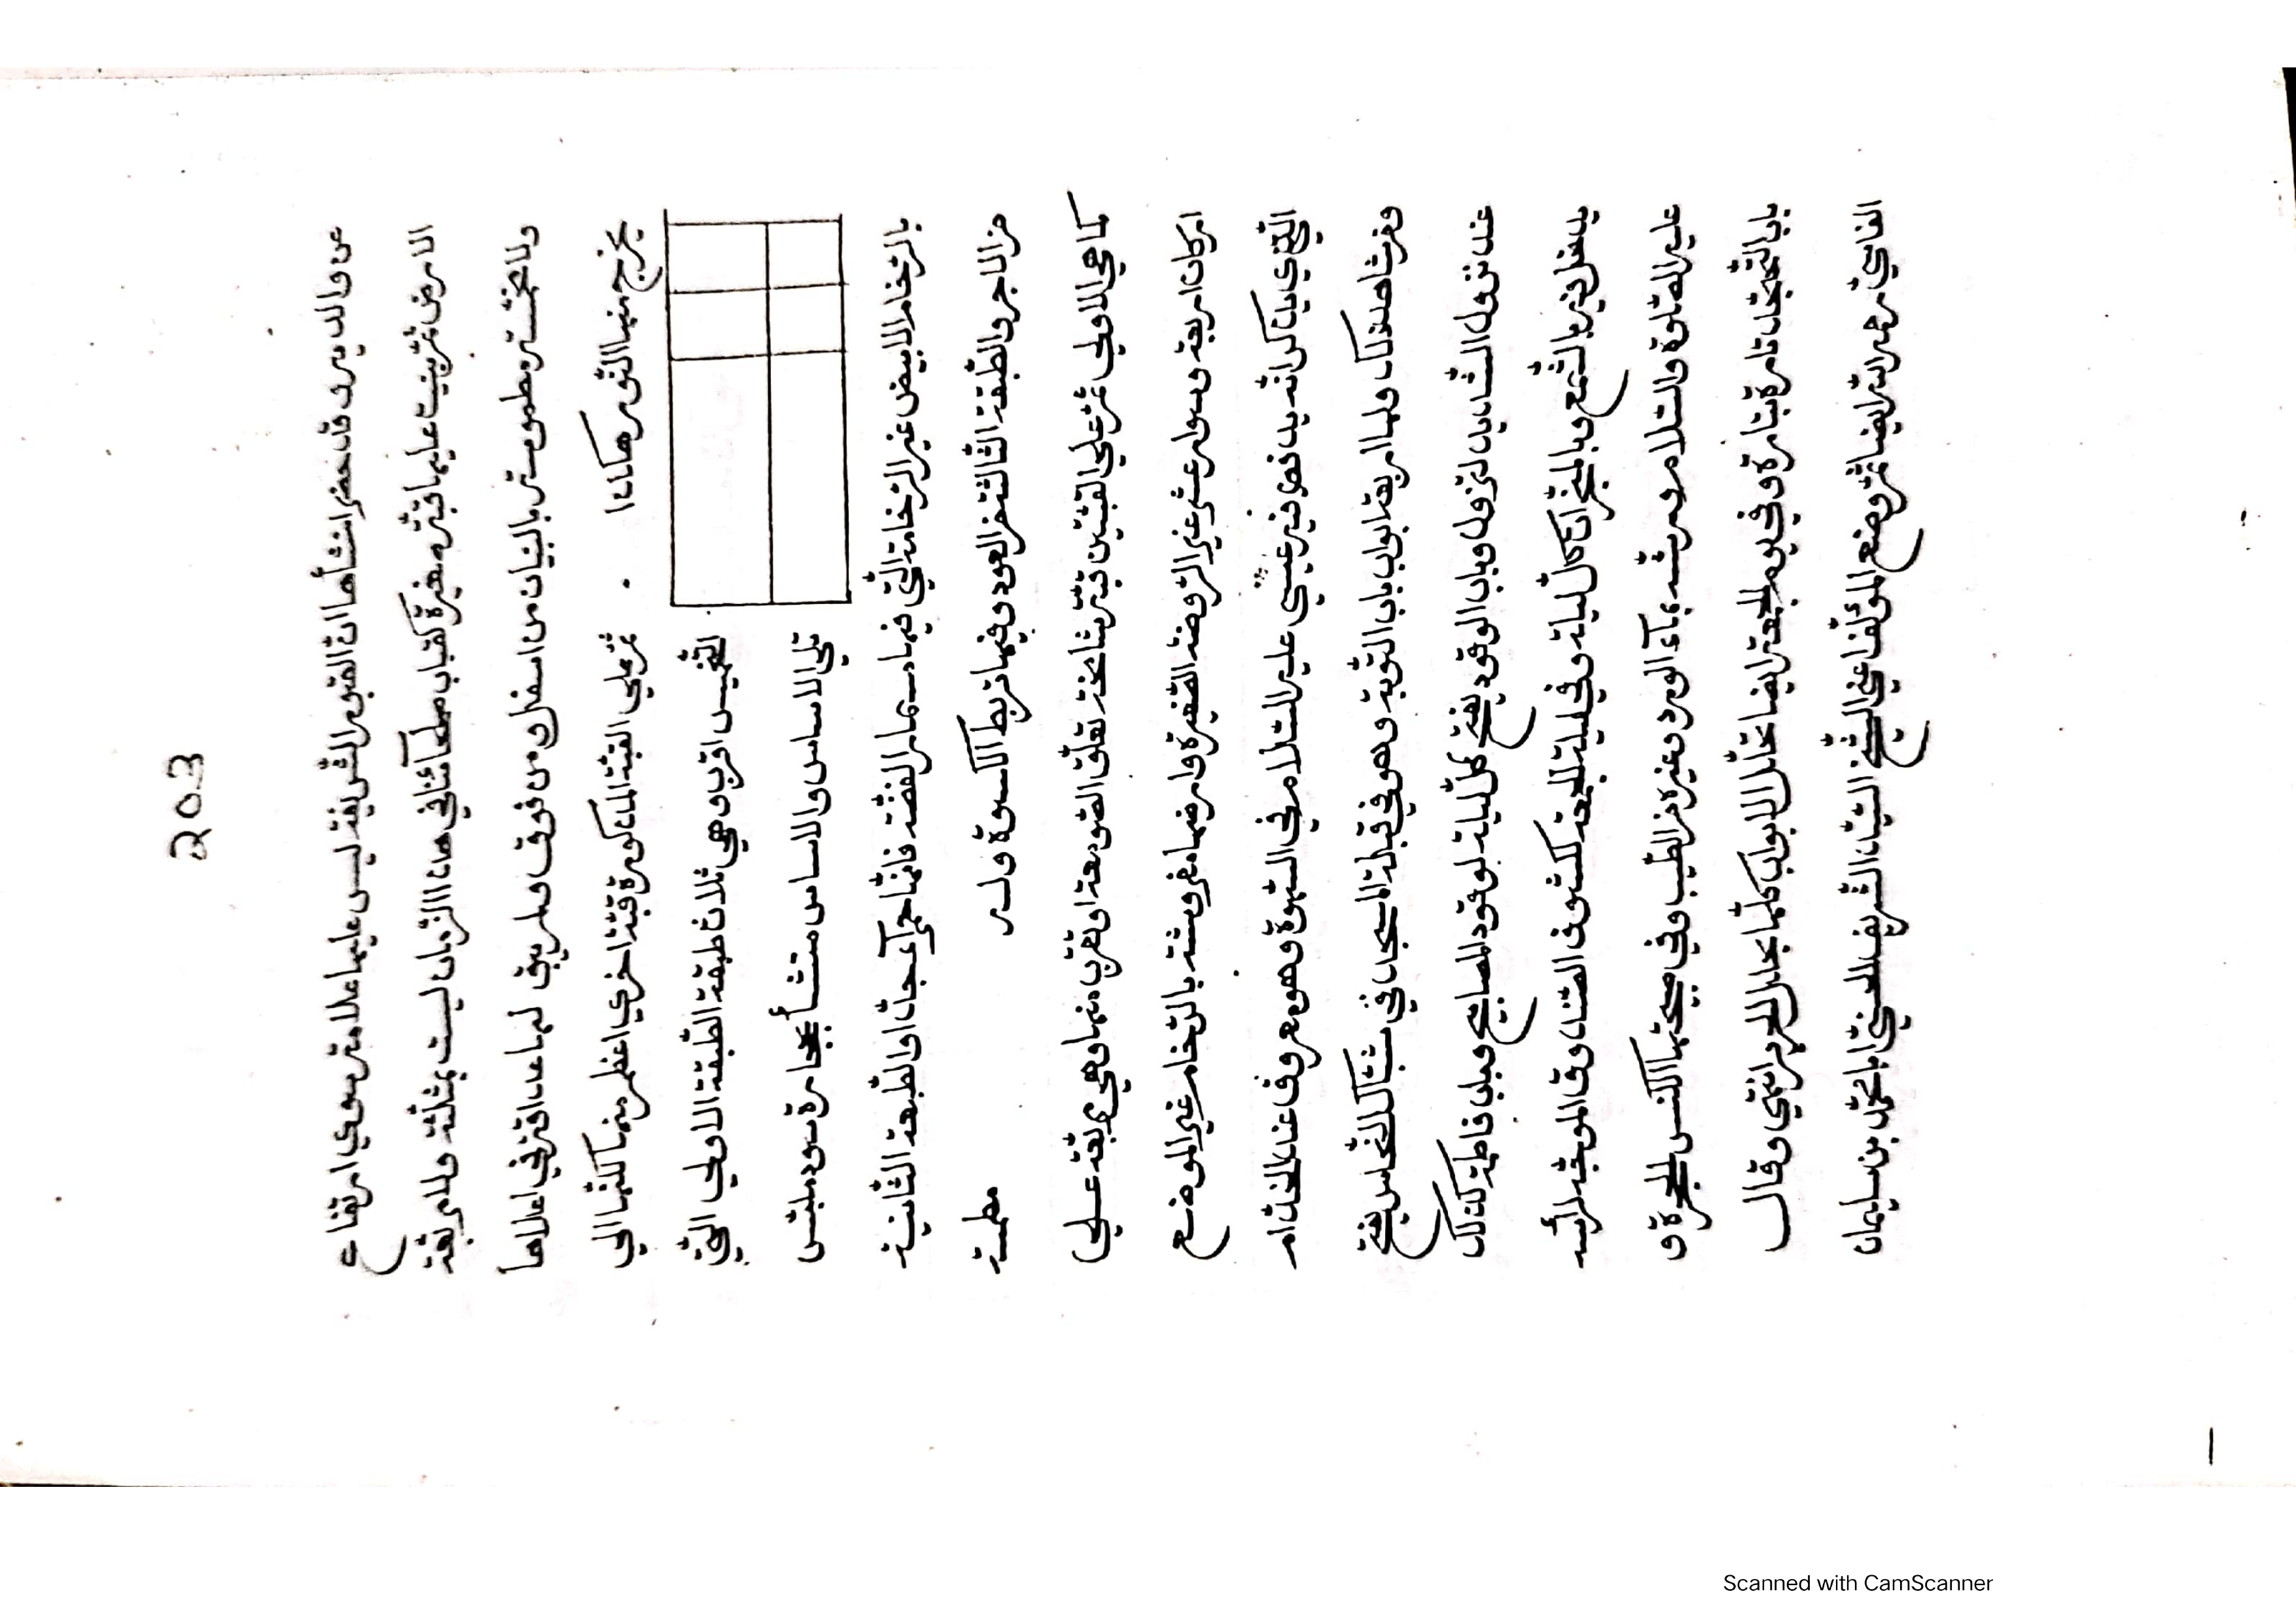 203
عن والديه وقد حضر انشأها ان القبور الشريفة ليس عليها علامة سوي ارتفاع
الارض ثم بنيت عليها قبة صغيرة كقباب هذا الزمان ليست بمثلثة ولا مربعة
ولا مخمسة مطموسة بالبنيان من اسفل ومن فوق ولم يبق لها عدا قبر في اعلاها
يخرج منها النور هكذا . ثم علي القبة المذكورة قبة اخري اعظم منها لكنها الي
التخميس اقرب وهي ثلاث طبقة الطبقة الاولي التي
تلي الاساس والاساس منشأ بحجارة سود ملبس
بالرخام الابيض غير الرخامة التي فيها مسمار الفضة فانها حمرآء جدا والطبقة الثانية
من الاجر والطبقة الثالثة من العود وفيها تربط الكسوة وله مطمسة
كما هي الاولي ثم علي القبتين قبة شامخة تعلق الصومعة او تقرب منها وهي مربعة علي
اركان اربعة وسوار عشر غير الروضة الصغيرة وارضها مفروشة بالرخام غير الموضع
الذي يذكر انه يدفن فيه عيسي عليه السلام في السهوة وهو معروف عند الخدام
وفرشاهنداك ولها اربعة ابواب باب التوبة وهو في قبالة المسجد في شباك النحاس يفتح
عند نزول الشدايد لنزول وباب الوقود يفتح كل ليلة لوقود المصابيح وباب فاطمة كذلك
يدخل فيه بالشمع وبالمبخران كل ليلة وفي ليلة الجمعة لكشوف الصندوق الموجه لرأسه
عليه الصلوة والسلام ورشه بمآء الورد وغيره من الطيب وفي صبيحتها لكنس الحجرة و
باب التهجد تارة بتارة وفي يوم الجمعة ايضا تخلل الابواب كلها بحلل الحرير انتهي وقال
الفاسي رحمه الله ايضا ثم وضع المؤلف اعني الشيخ السيد الشريف الحسني ابا محمد بن سليمان
Scanned with CamScanner